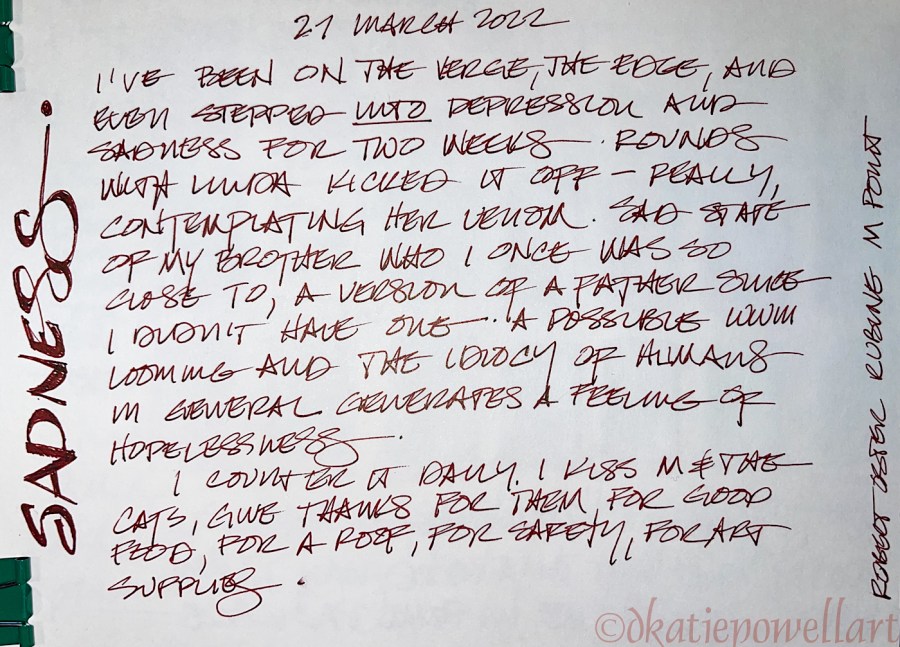 21 MARCH 2022
SADNESS.
I'VE BEEN ON THE VERGE, THE EDGE, AND
EVEN STEPPED INTO DEPRESSION AND
SADNESS FOR TWO WEEKS. ROUNDS
WITH LINDA KICKED IT OFF — REALLY,
CONTEMPLATING HER VENOM. SAD STATE
OF MY BROTHER WHO I ONCE WAS SO
CLOSE TO, A VERSION OF A FATHER SINCE
I DIDN'T HAVE ONE... A POSSIBLE WWIII
LOOMING AND THE IDIOCY OF HUMANS
IN GENERAL GENERATES A FEELING OF
HOPELESSNESS.
I COUNTER IT DAILY. I KISS M & THE
CATS, GIVE THANKS FOR THEM, FOR GOOD
FOOD, FOR A ROOF, FOR SAFETY, FOR ART
SUPPLIES.
ROBERT OSTER RUBINE M POINT
©dkatiepowellart